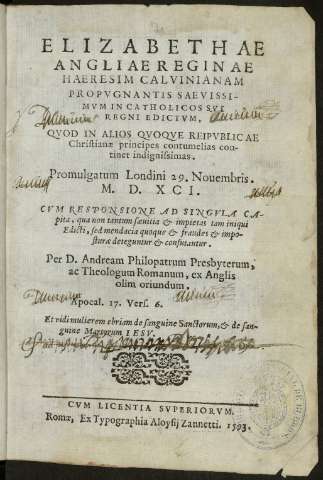 ELIZABETHAE
ANGLIAE REGINAE
HAERESIM CALVINIANAM
PROPVGNANTIS SAEVISSI-
MVM IN CATHOLICOS SVI
REGNI EDICTVM,
QVOD IN ALIOS QVOQVE REIPVBLICAE
Christianæ principes contumelias con-
tinet indignissimas.
Promulgatum Londini 29. Nouembris.
M. D. XCI.
CVM RESPONSIONE AD SINGVLA CA-
pita, qua non tantum sæuitia & impietas tam iniqui
Edicti, sed mendacia quoque & fraudes & impo-
sturæ deteguntur & confutantur.
Per D. Andream Philopatrum Presbyterum,
ac Theologum Romanum, ex Anglis
olim oriundum.
Apocal. 17. Vers. 6.
Et vidi mulierem ebriam de sanguine Sanctorum, & de san-
guine Martyrum IESV.
CVM LICENTIA SVPERIORVM.
Romæ, Ex Typographia Aloysij Zannetti. 1593.